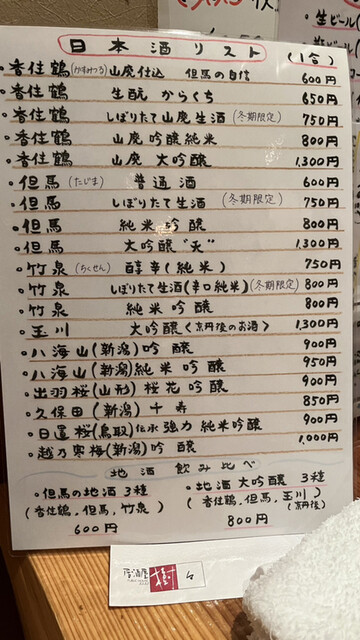 日本酒リスト (1合)
・香住鶴(かすみつる)山廃仕込 但馬の自信 600円
・香住鶴 生酛 からくち 650円
・香住鶴 しぼりたて山廃生酒(冬期限定) 750円
・香住鶴 山廃吟醸純米 800円
・香住鶴 山廃 大吟醸 1,300円
・但馬(たじま) 普通酒 600円
・但馬 しぼりたて生酒(冬期限定) 750円
・但馬 純米吟醸 800円
・但馬 大吟醸"天" 1,300円
・竹泉(ちくせん) 醇辛(純米) 750円
・竹泉 しぼりたて生酒(辛口純米)(冬期限定) 800円
・竹泉 純米吟醸 800円
・玉川 大吟醸<京丹後のお酒> 1,300円
・八海山(新潟)吟醸 900円
・八海山(新潟)純米吟醸 950円
・出羽桜(山形)桜花吟醸 900円
・久保田(新潟)千寿 850円
・日置桜(鳥取)伝承強力 純米吟醸 900円
・越乃寒梅(新潟)吟醸 1,000円
地酒 飲み比べ
・但馬の地酒3種
(香住鶴、但馬、竹泉)
600円
・地酒 大吟醸 3種
(香住鶴、但馬、玉川)
(京丹後)
800円
居酒屋
樹
生ビール